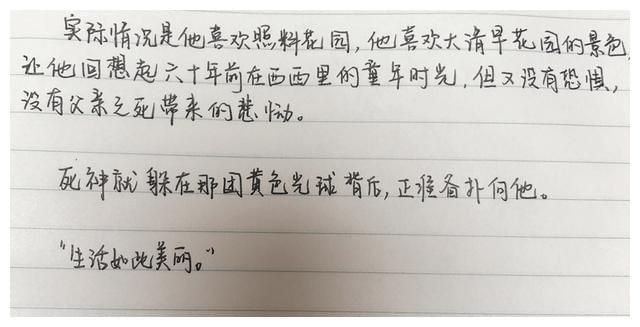 实际情况是他喜欢照料花园，他喜欢大清早花园的景色，
让他回想起六十年前在西西里的童年时光，但又没有恐惧，
没有父亲之死带来的悲恸。
死神就躲在那团黄色光球背后，正准备扑向他。
“生活如此美丽。”